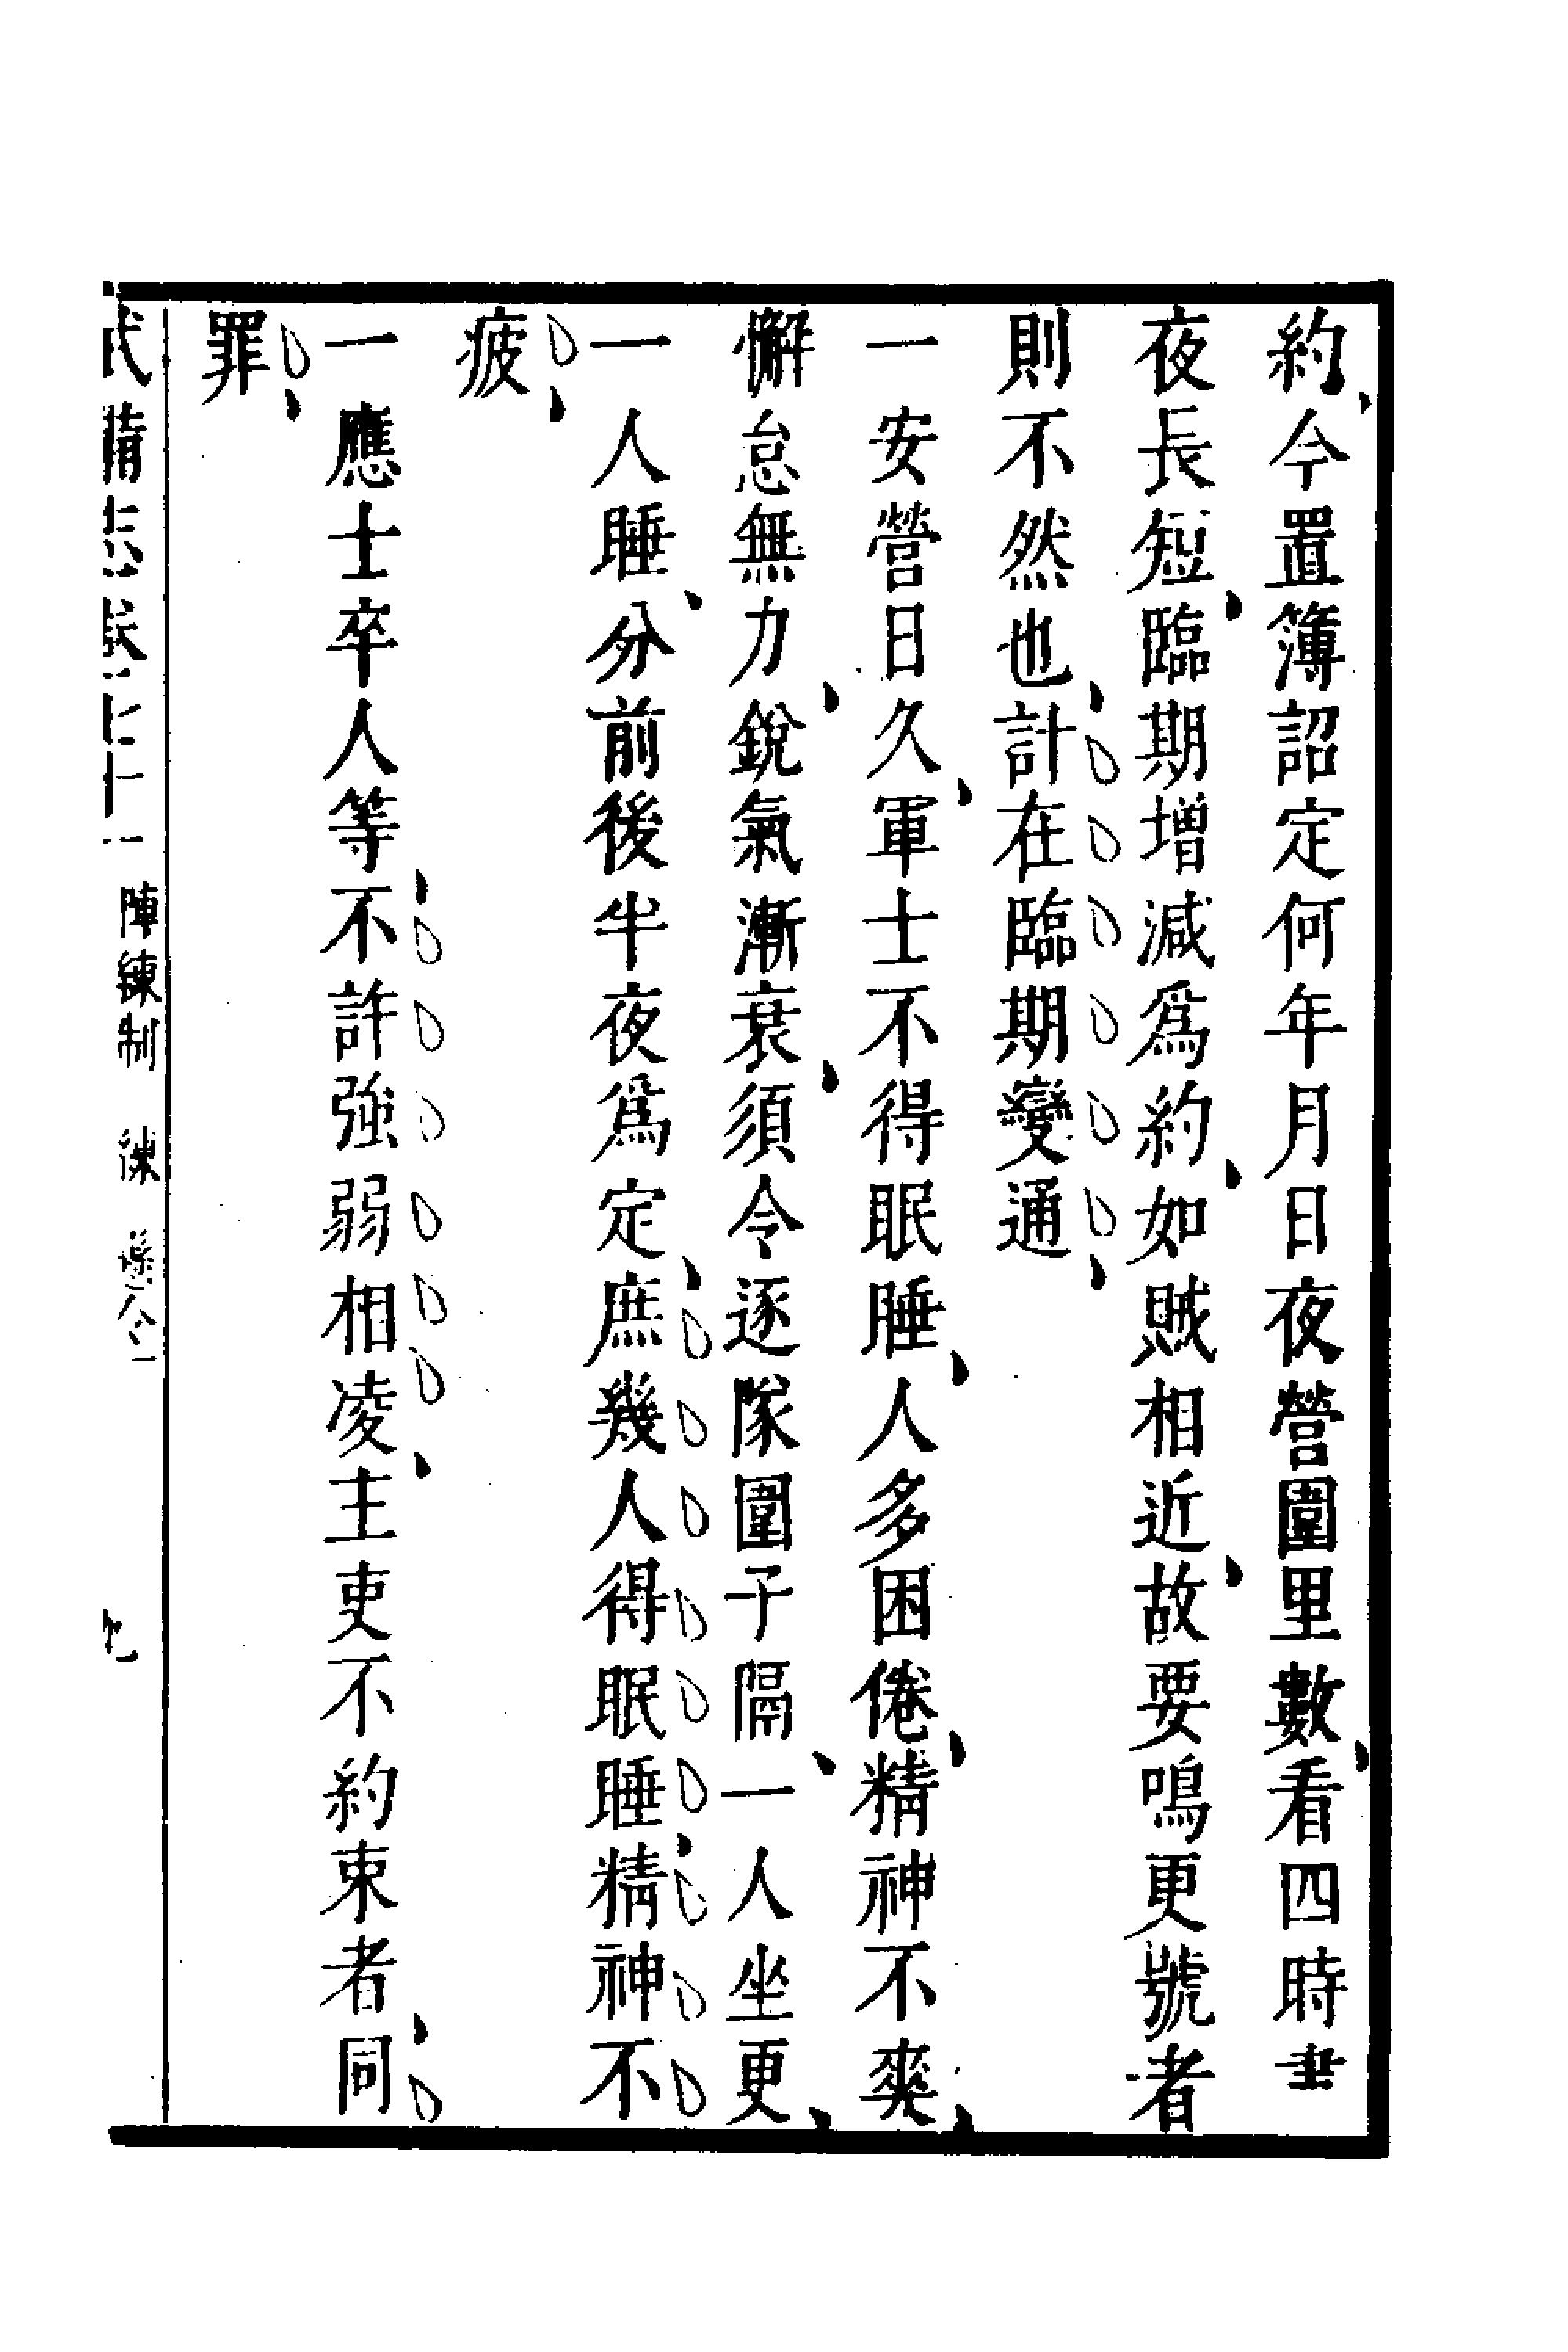 約今置簿詔定何年月日夜營圍里數看四時書
夜長短臨期增減爲約如賊相近故要鳴更號者
則不然也計在臨期變通
一安營日久軍士不得眠睡人多困倦精神不爽
懈怠無力銳氣漸衰須令逐隊圍子隔一人坐更
一人睡分前後半夜爲定庶幾人得眠睡精神不
疲
一應士卒人等不許強弱相凌主吏不約束者同
罪
武備志卷七十一 陣練制 練 操令一 九